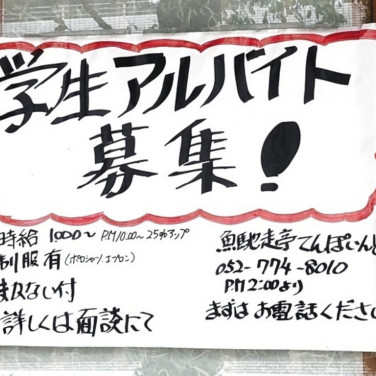 学生アルバイト
募集!
時給 1000〜 P.M10.00〜25%アップ
制服有(ポロシャツ.エプロン)
まかない付
詳しくは面談にて
魚馳走亭てんぽいんと
052-774-8010
P.M 2:00より
まずは お電話ください